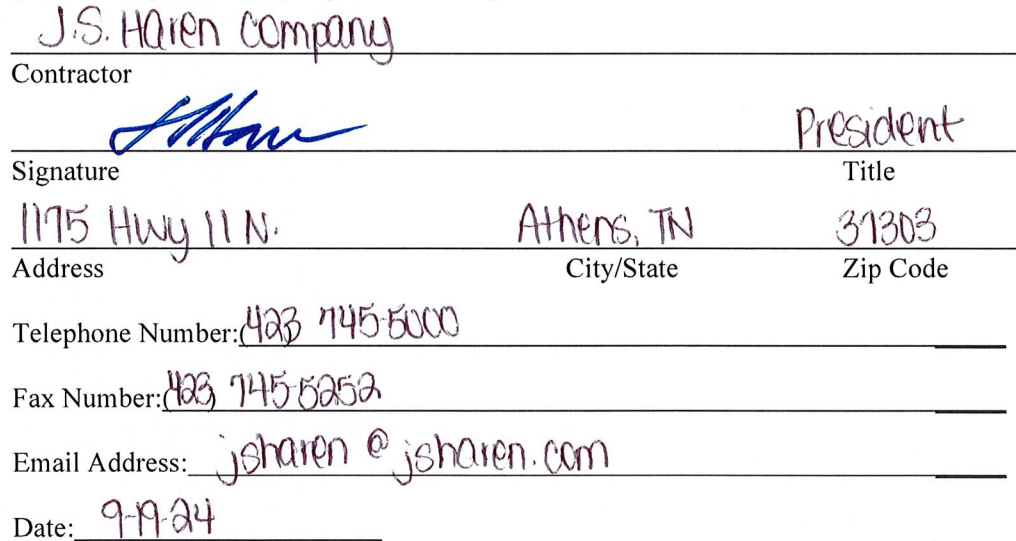 J.S. Haren Company
Contractor
President
Signature Title
1175 Hwy 11 N. Athens, TN 37303
Address City/State Zip Code
Telephone Number:(423) 745-5000
Fax Number:(423) 745-5252
Email Address: jsharen@jsharen.com
Date: 9-19-24